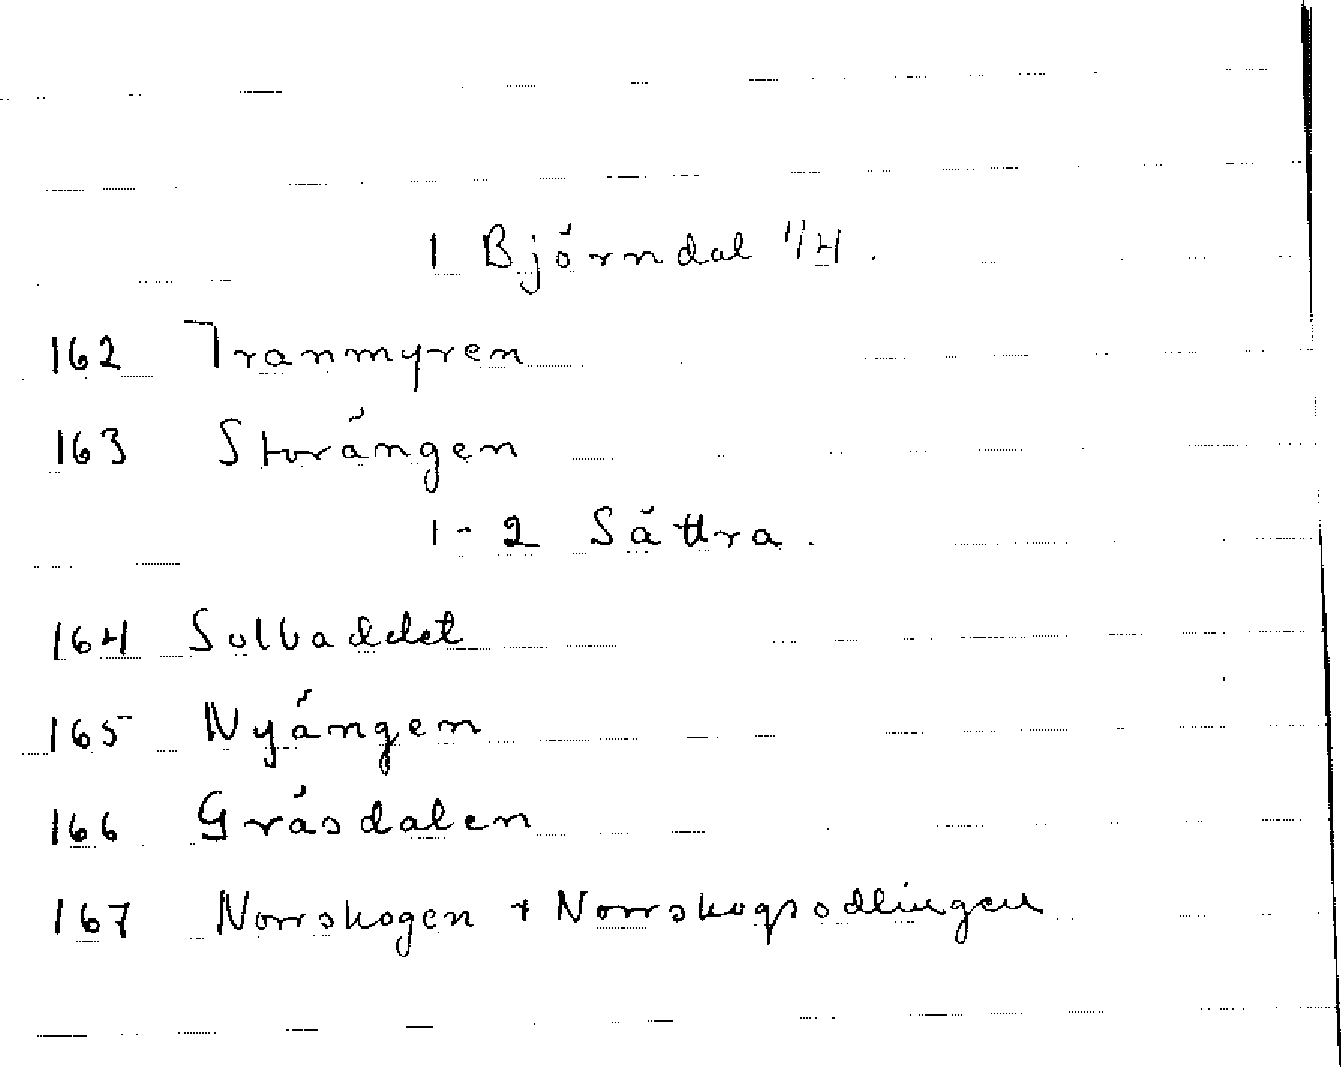 1 Björndal 1/4.
162 Tranmyren
163 Storängen
1-2 Sättra.
164 Solbaddet
165 Nyängen
166 Gräsdalen
167 Norrskogen + Norrskogsodlingen